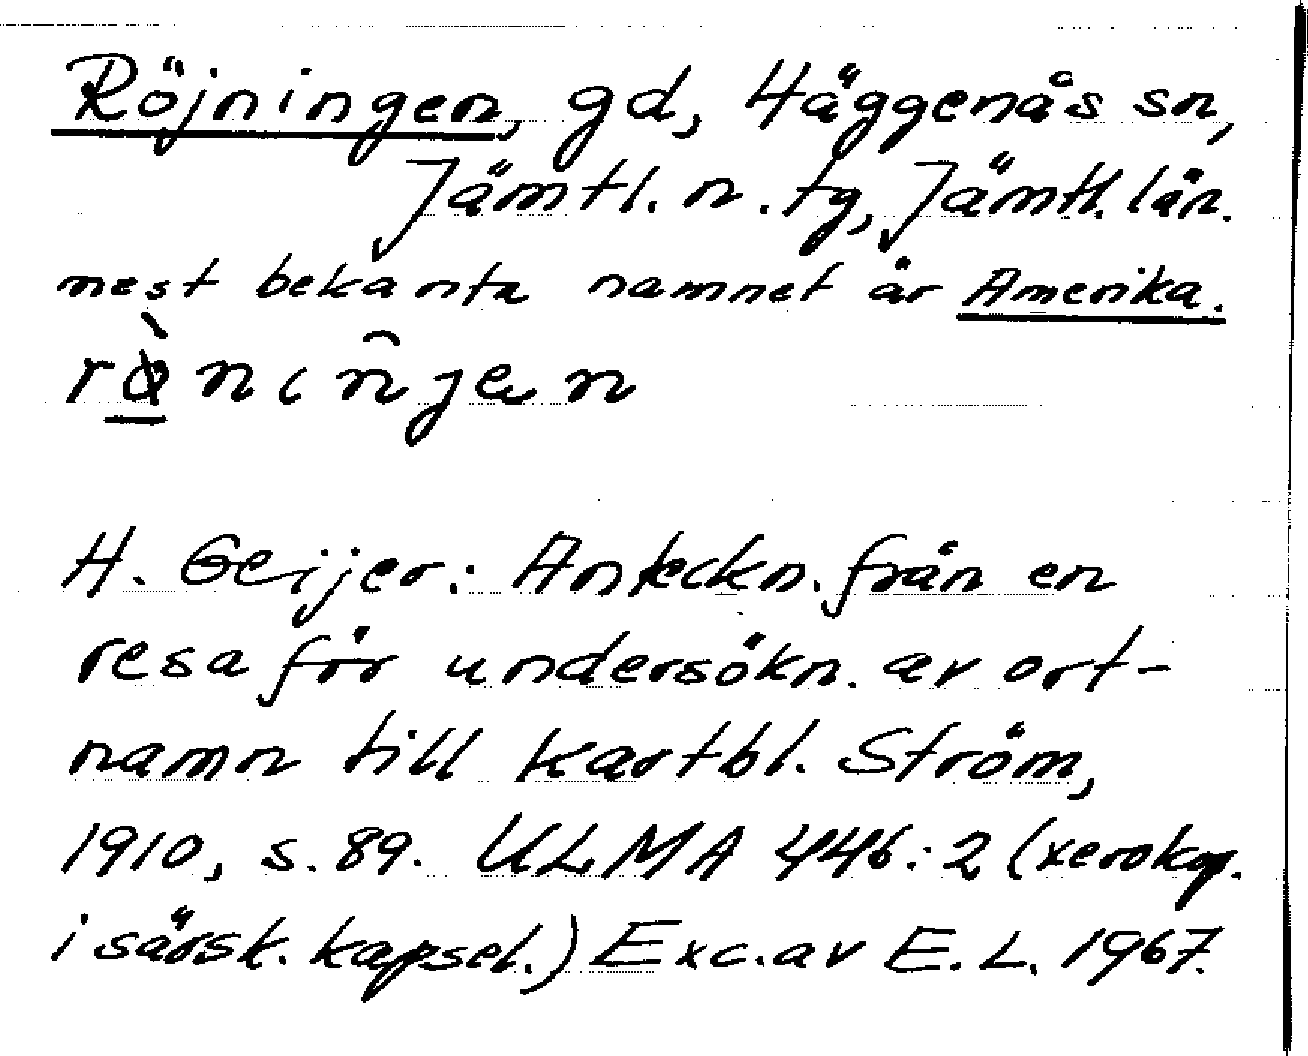 Röjningen, gd, Häggenås sn,
Jämtl. n. tg, Jämtl. län.
mest bekanta namnet är Amerika.
H. Geijer: Anteckn. från en
resa för undersökn. av ort-
namn till kartbl. Ström,
1910, s. 89. ULMA 446:2 (xerokop.
i särsk. kapsel.) Exc. av E. L. 1967.